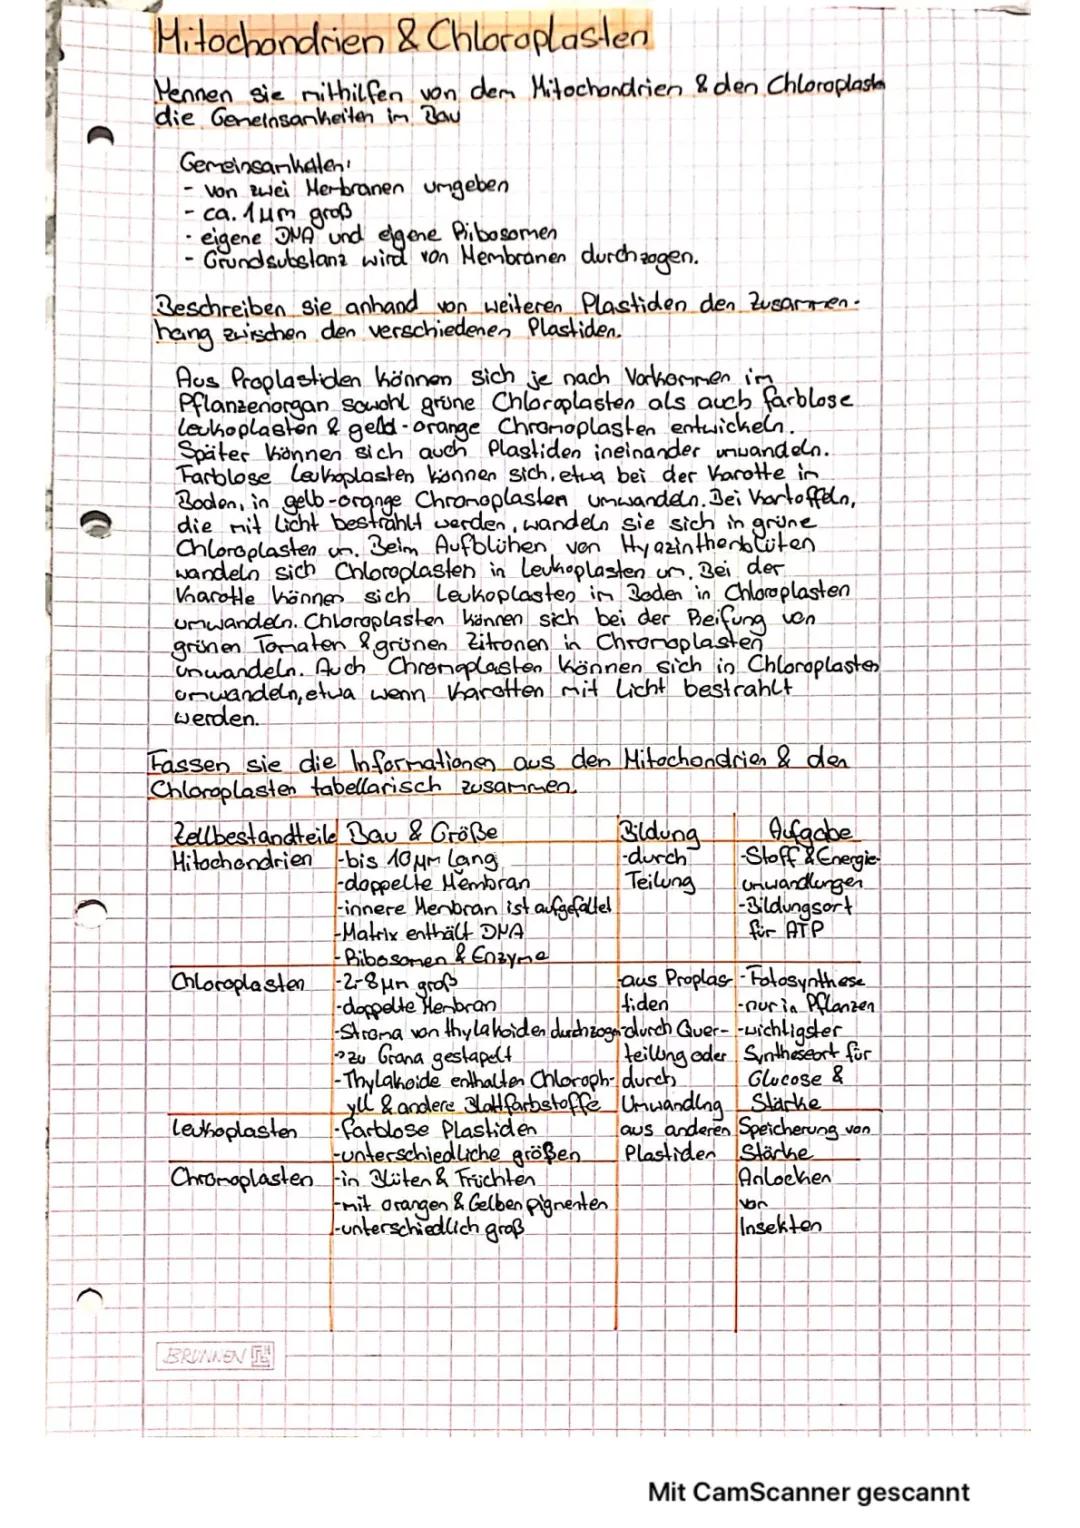 Mitochondrien & Chloroplasten
Nennen sie mithilfen von dem Mitochondrien & den Chloroplasten
die Gemeinsamkeiten im Bau
Gemeinsamkeiten:
- von zwei Membranen umgeben
- ca. 1µm groß
- eigene DNA und eigene Ribosomen
- Grundsubstanz wird von Membranen durchzogen.
Beschreiben sie anhand von weiteren Plastiden den Zusammen-
hang zwischen den verschiedenen Plastiden.
Aus Proplastiden können sich je nach Vorkommen im
Pflanzenorgan sowohl grüne Chloroplasten als auch farblose
Leukoplasten & gelb-orange Chromoplasten entwickeln.
Später können sich auch Plastiden ineinander umwandeln.
Farblose Leukoplasten können sich, etwa bei der Karotte im
Boden, in gelb-orange Chromoplasten umwandeln. Bei Kartoffeln,
die mit Licht bestrahlt werden, wandeln sie sich in grüne
Chloroplasten um. Beim Aufblühen von Hyazinthenblüten
wandeln sich Chloroplasten in Leukoplasten um. Bei der
Karotte können sich Leukoplasten im Boden in Chloroplasten
umwandeln. Chloroplasten können sich bei der Reifung von
grünen Tomaten & grünen Zitronen in Chromoplasten
umwandeln. Auch Chromoplasten können sich in Chloroplasten
umwandeln, etwa wenn Karotten mit Licht bestrahlt
werden.
Fassen sie die Informationen aus den Mitochondrien & den
Chloroplasten tabellarisch zusammen.
Zellbestandteile Bau & Größe Bildung Aufgabe
Mitochondrien -bis 10µm lang -durch -Stoff & Energie-
-doppelte Membran Teilung umwandlungen
-innere Membran ist aufgefaltet -Bildungsort
-Matrix enthält DNA für ATP
-Ribosomen & Enzyme
Chloroplasten -2-8µm groß aus Proplas- -Fotosynthese
-doppelte Membran tiden -nur in Pflanzen
-Stroma von thylakoiden durchzogn durch Quer- -wichtigster
→zu Grana gestapelt teilung oder Syntheseort für
-Thylakoide enthalten Chloroph- durch Glucose &
yll & andere Blattfarbstoffe Umwandlng Stärke
Leukoplasten -farblose Plastiden aus anderen Speicherung von
-unterschiedliche größen Plastiden Stärke
Chromoplasten -in Blüten & Früchten Anlocken
-mit orangen & Gelben pigmenten von
-unterschiedlich groß Insekten
BRUNNEN
Mit CamScanner gescannt